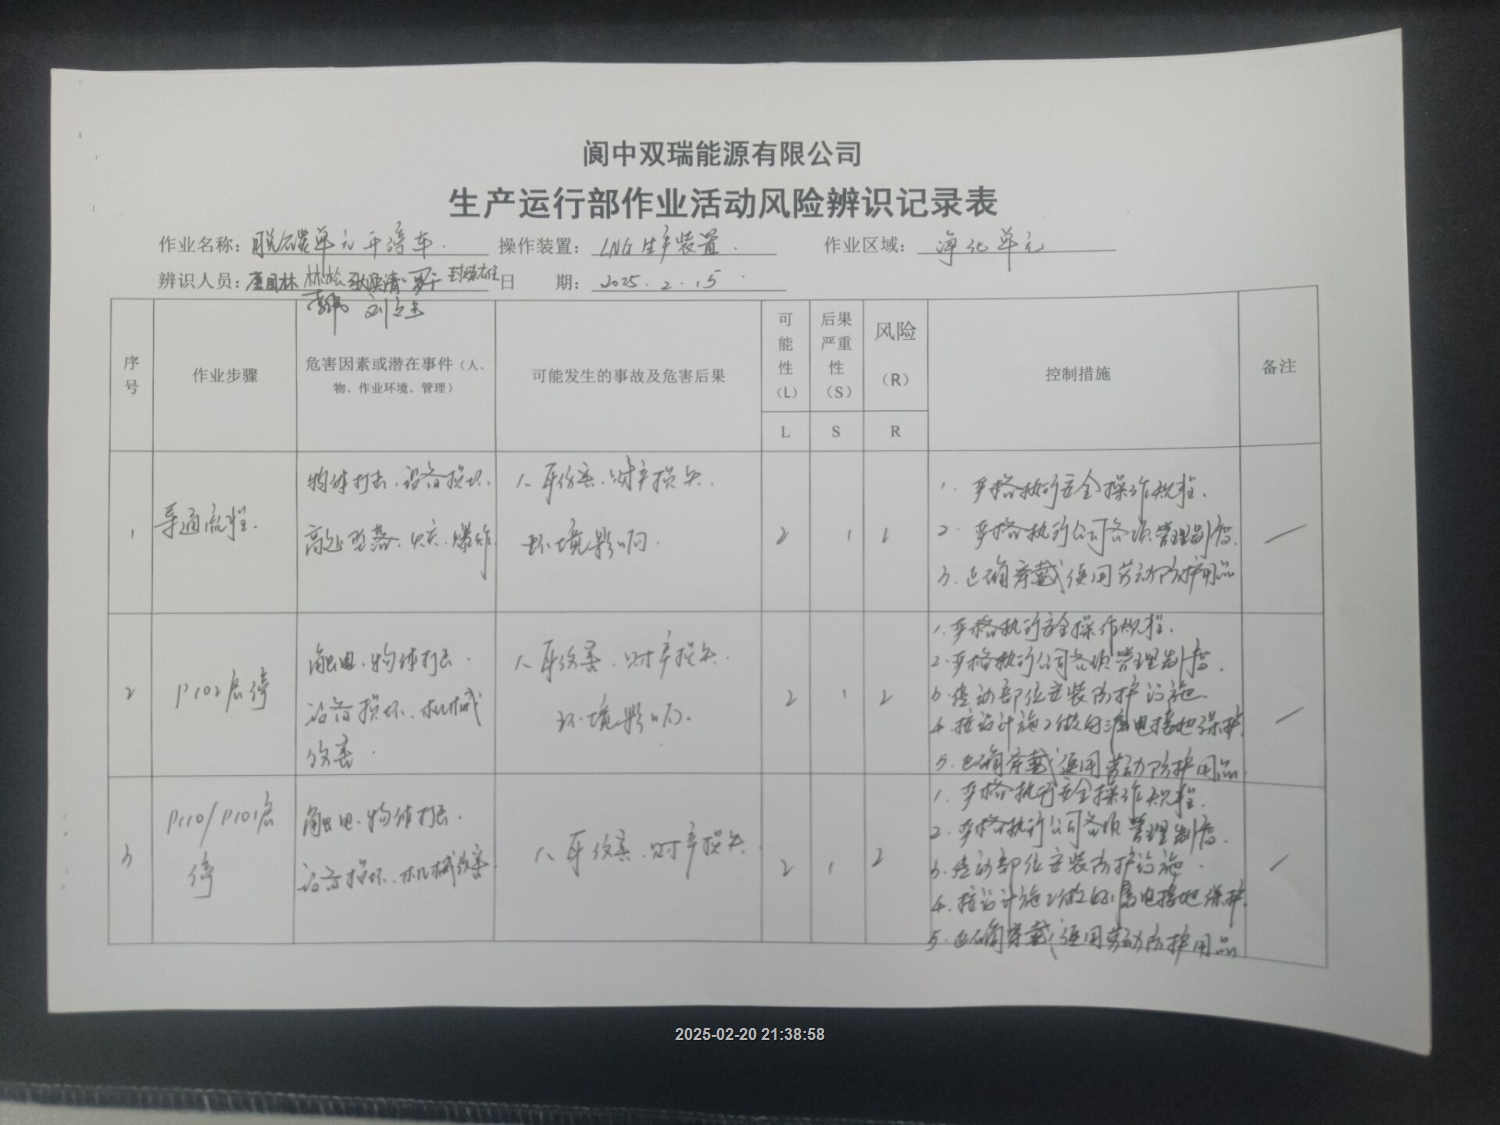 阆中双瑞能源有限公司
生产运行部作业活动风险辨识记录表
作业名称：脱碳单元开停车. 操作装置：LNG生产装置. 作业区域：净化单元
辨识人员： 林松 罗 日 期：2025.2.15
序号 作业步骤 危害因素或潜在事件（人、物、作业环境、管理） 可能发生的事故及危害后果 可能性（L） 后果严重性（S） 风险（R） 控制措施 备注
L S R
1 导通流程. 物体打击、设备损坏. 人身伤害、财产损失. 2 1 1. 严格执行安全操作规程.
高处坠落、火灾、爆炸 环境影响. 2. 严格执行公司各项管理制度.
3. 正确穿戴使用劳动防护用品
2 P102启停 触电、物体打击. 人身伤害、财产损失. 2 1 2 1. 严格执行安全操作规程.
设备损坏、机械 环境影响. 2. 严格执行公司各项管理制度.
伤害. 3. 传动部位安装防护设施.
4. 按设计施工做好漏电接地保护.
5. 正确穿戴使用劳动防护用品
3 P110/P101启停 触电、物体打击. 人身伤害、财产损失. 2 1 2 1. 严格执行安全操作规程.
设备损坏、机械伤害 2. 严格执行公司各项管理制度.
3. 传动部位安装防护设施.
4. 按设计施工做好漏电接地保护.
5. 正确穿戴使用劳动防护用品
2025-02-20 21:38:58